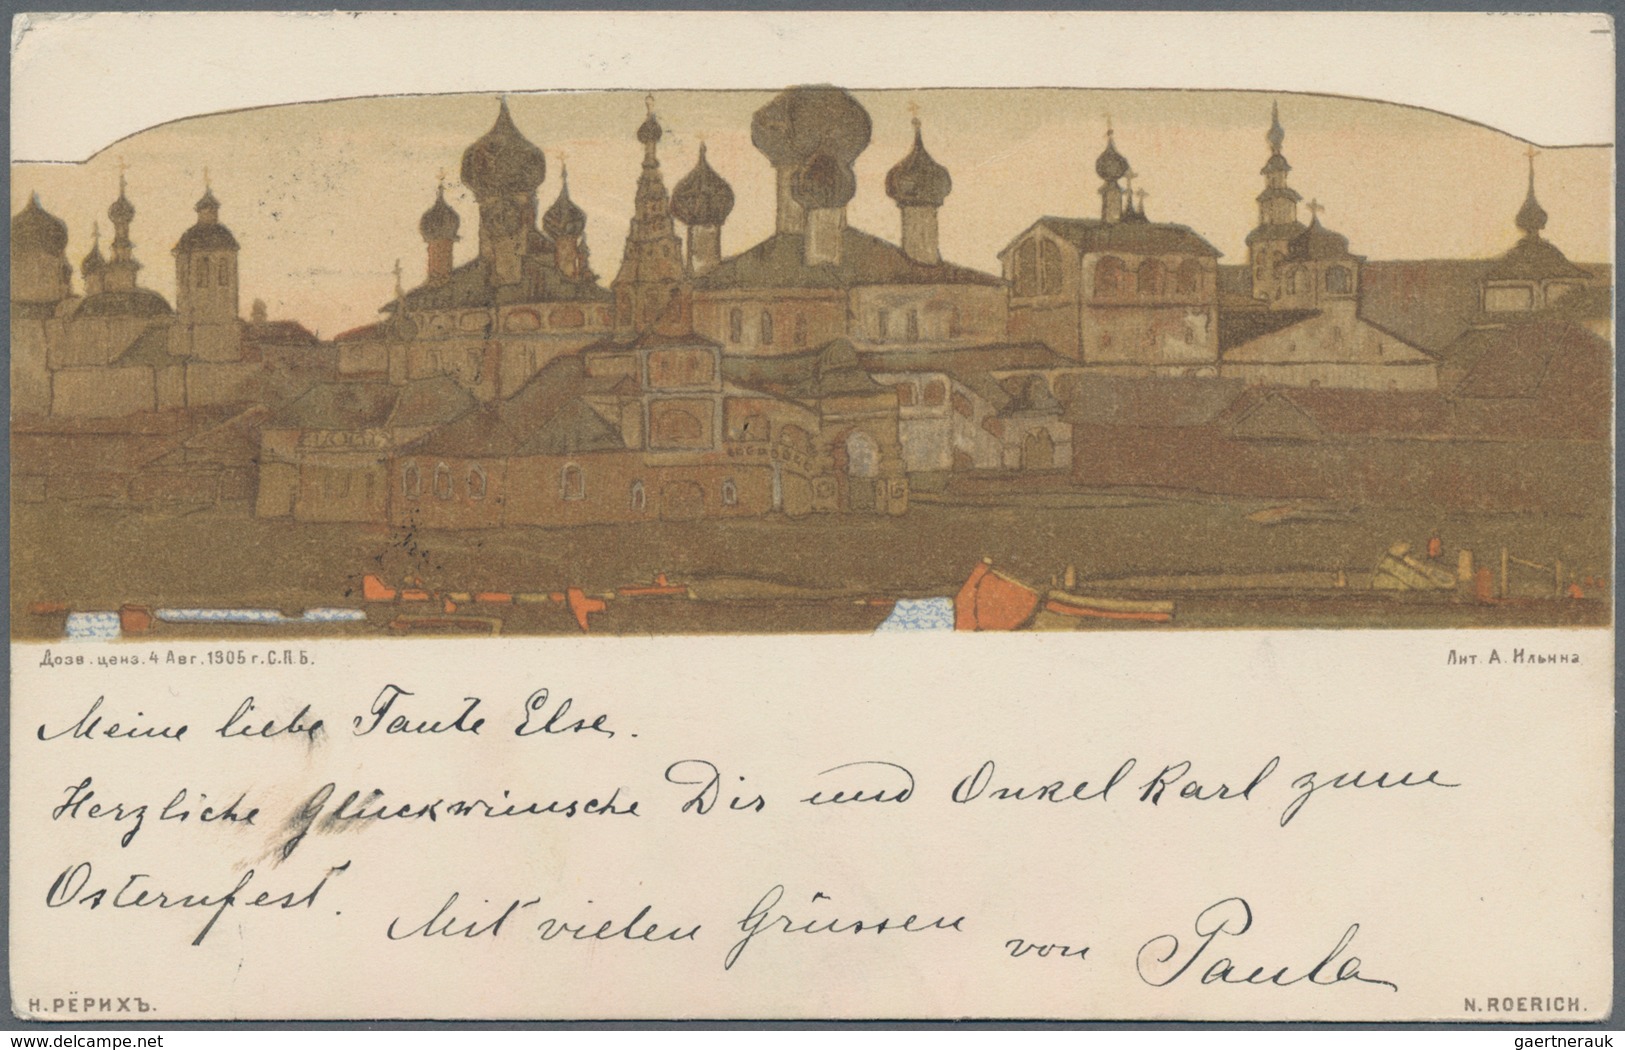 Дозв. ценз. 4 Авг. 1905 г. С.П.Б.
Лит. А. Ильина
Meine liebe Tante Else.
Herzliche Glückwünsche Dir und Onkel Karl zum
Osternfest.
Mit vielen Grüssen
von Paula
Н. РЁРИХЪ.
N. ROERICH.
www.delcampe.net
gaertnerauk